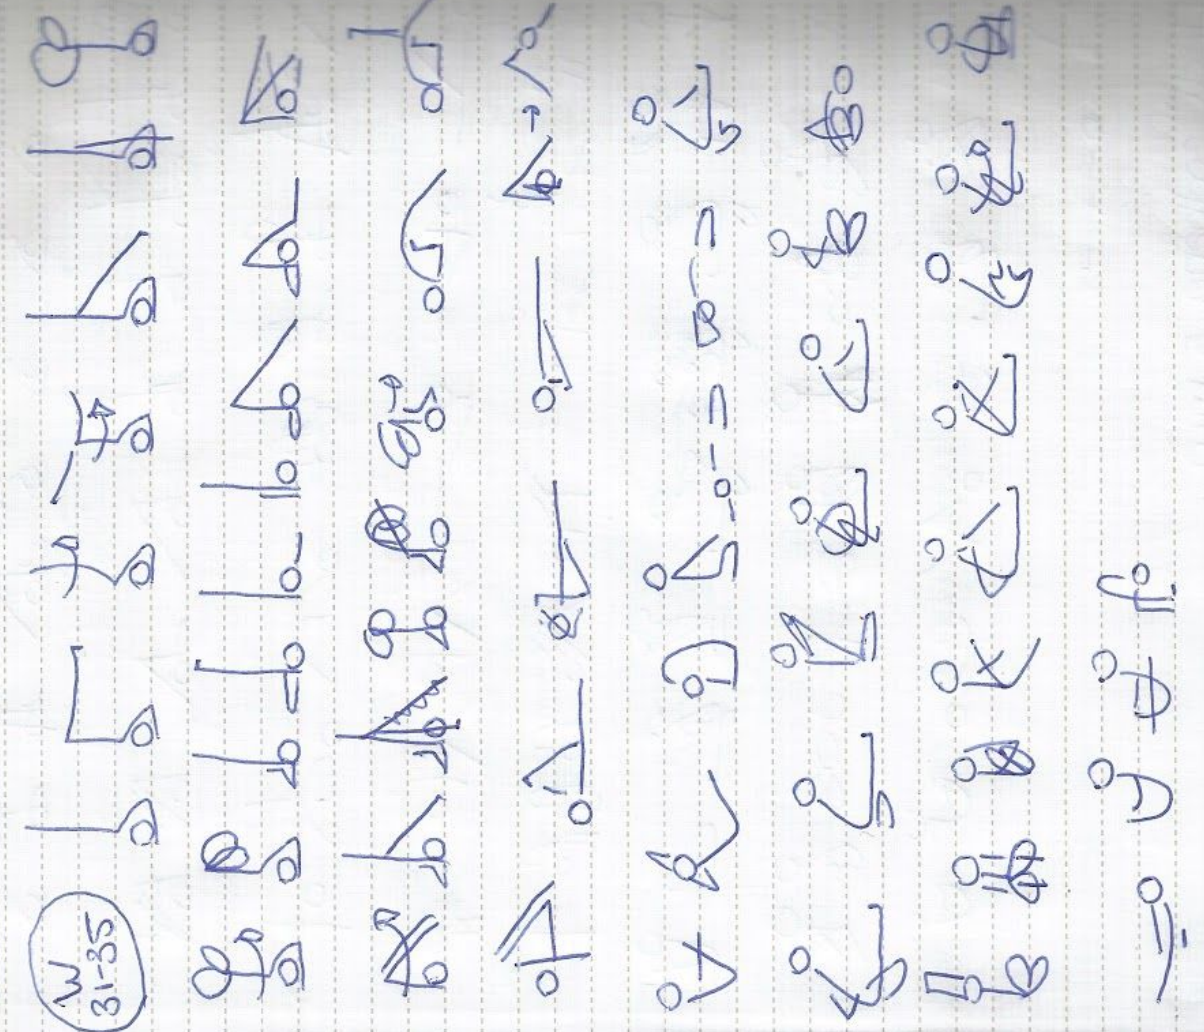 W
31-35